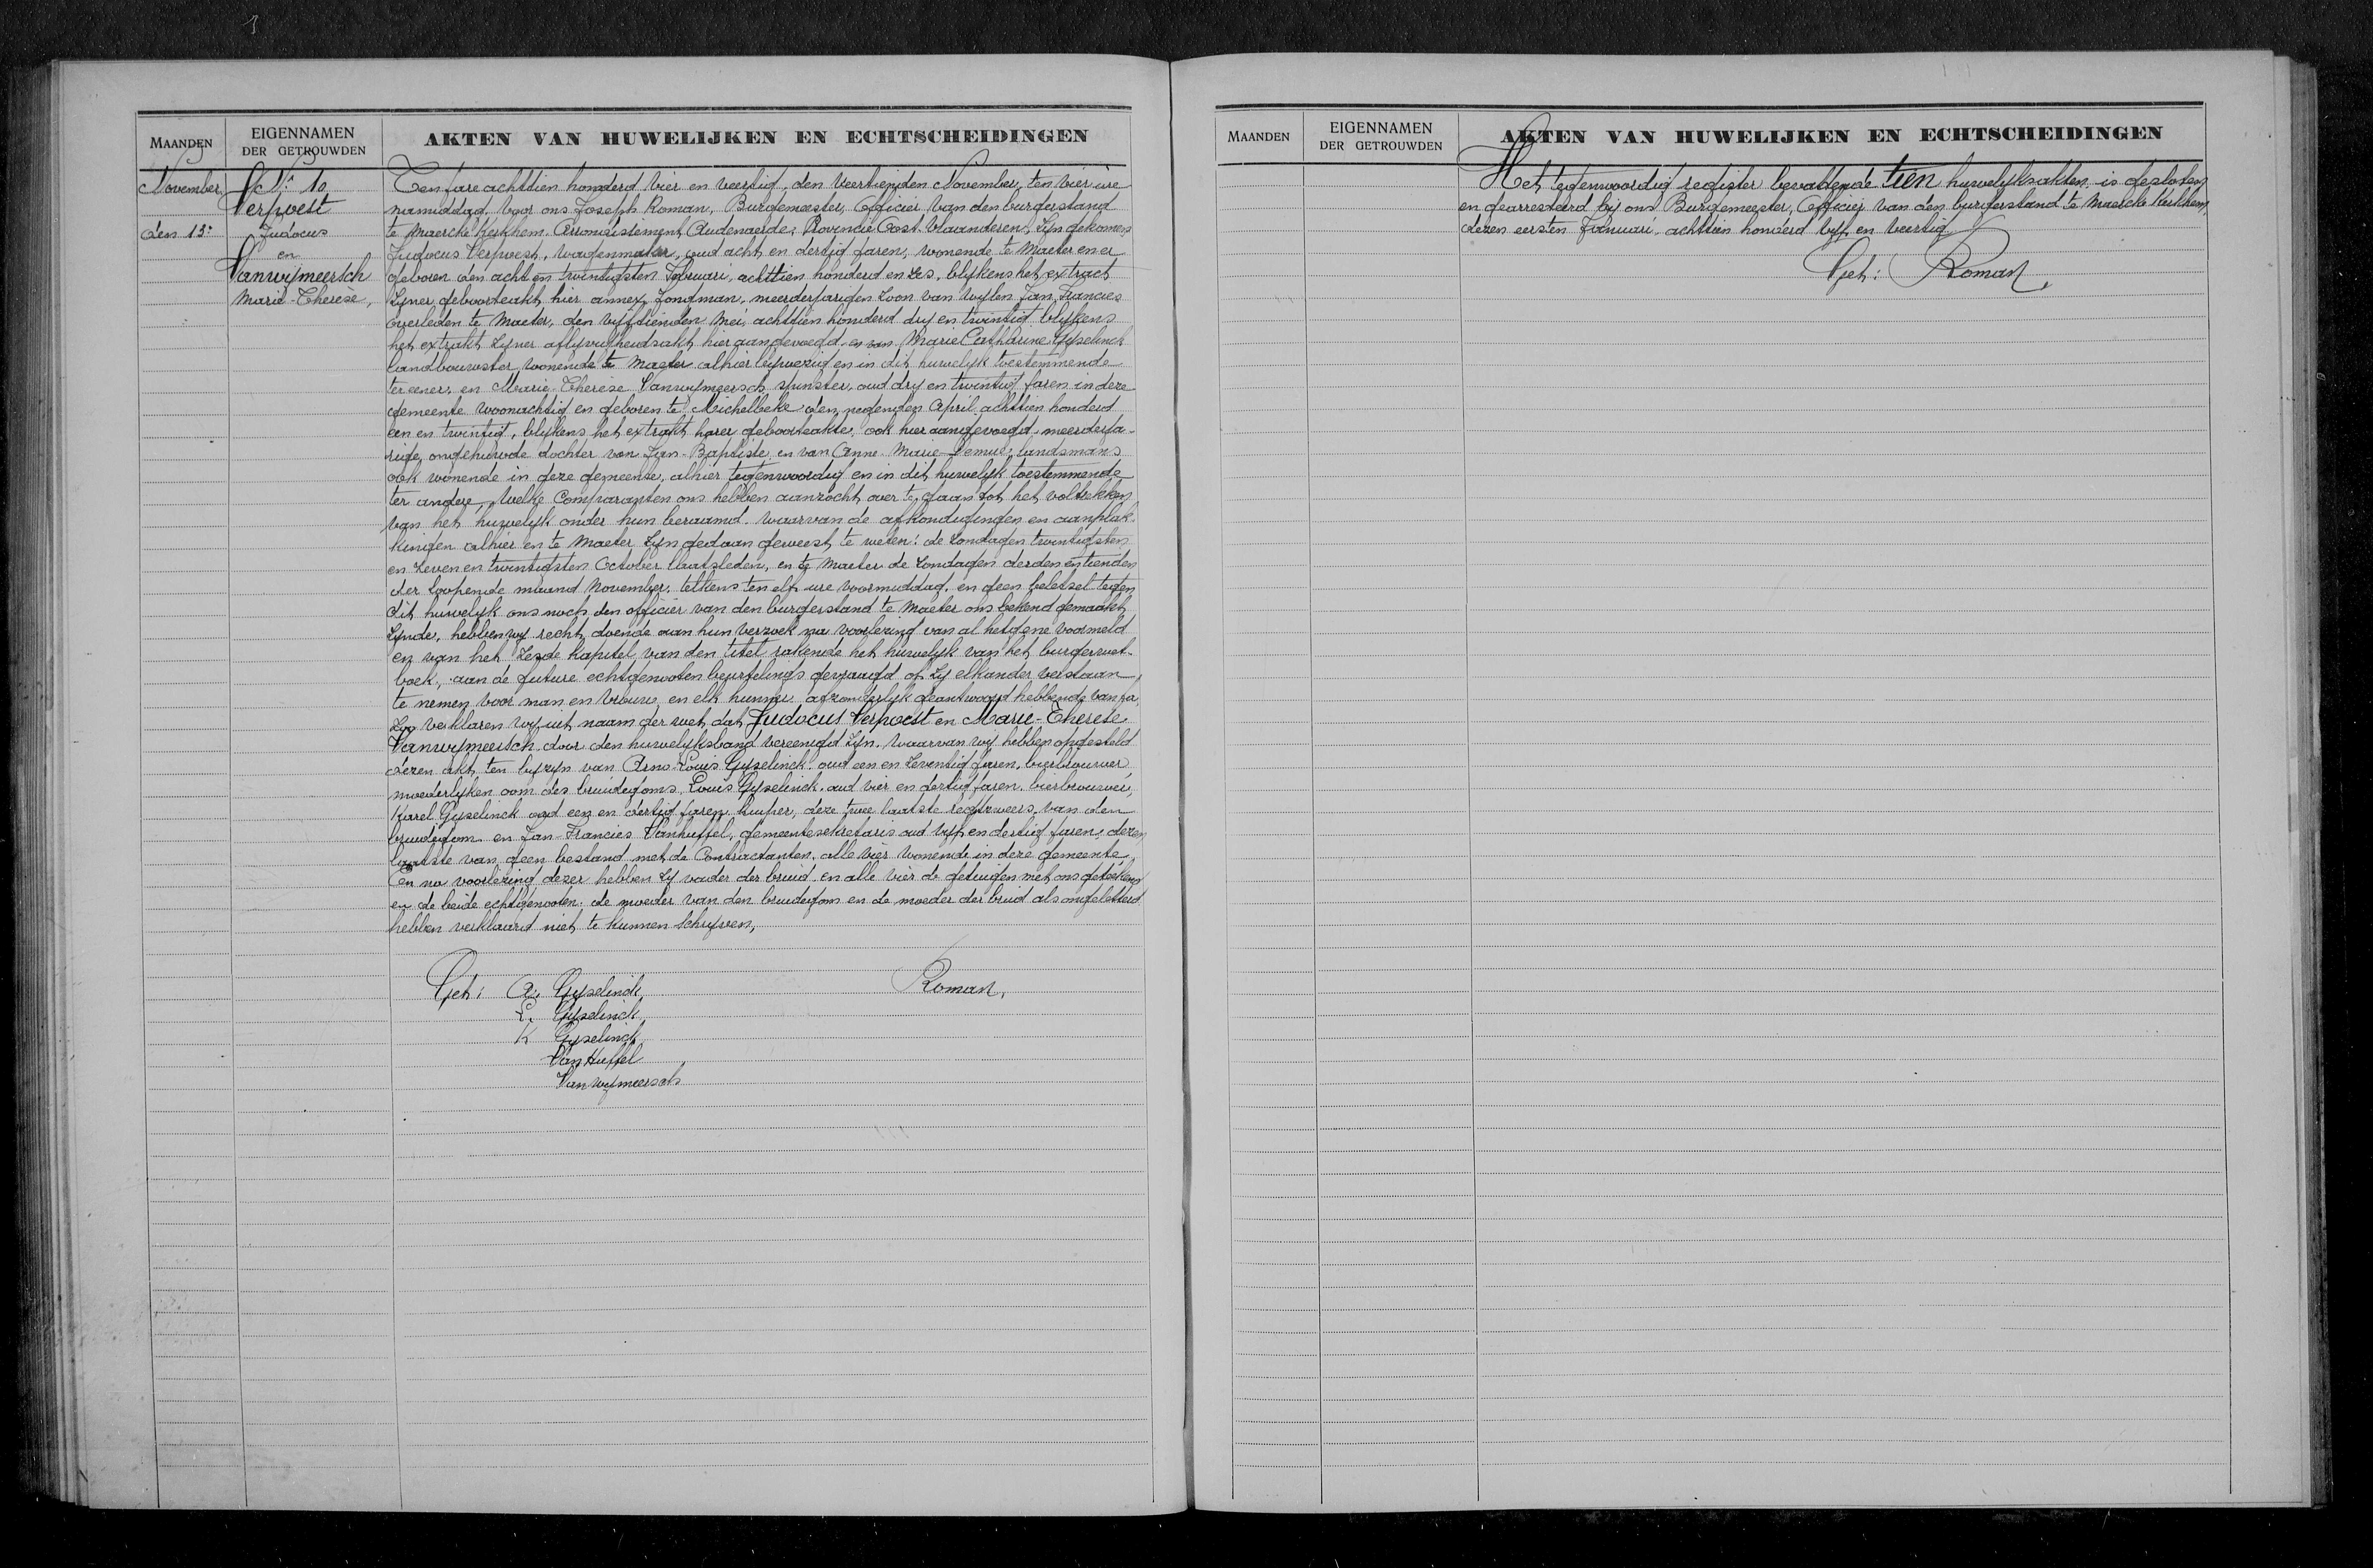 MAANDEN
EIGENNAMEN
DER GETROUWDEN
AKTEN VAN HUWELIJKEN EN ECHTSCHEIDINGEN
November
den 13e
No 10
Verpoest
Judocus
en
Vanwymeersch
Marie-Therèse,
Ten jare achttien honderd vier en veertig, den veertienden November, ten vier ure
namiddag, voor ons Joseph Roman, Burgemeester, Officier van den burgerstand
te Maercke Kerkhem, Arrondistement Audenaerde, Provencie Oost-vlaanderen, Zyn gekomen
Judocus Verpoest, wagenmaker, oud acht en dertig jaren, wonende te Maeter en er
geboren den acht en twintigsten Februari, achttien honderd en zes, blykens het extract
zyner geboorteakt hier annex, jongman, meerderjarigen zoon van wylen Jan Francies
overleden te Maeter, den vyftienden Mei, achttien honderd dry en twintig blykens
het extrakt zyner aflyvigheidsakt hier aangevoegd en van Marie Catharine Gyselinck
landbouwster wonende te Maeter alhier bywezig en in dit huwelyk toestemmende
ter eener, en Marie-Therese Vanwymeersch, spinster, oud dry en twintig jaren in deze
gemeente woonachtig en geboren te Michelbeke den negenden April achttien honderd
een en twintig, blykens het extrakt harer geboorteakte, ook hier aangevoegd, meerderja-
rige, ongehuwde dochter van Jan-Baptiste en van Anne-Marie Demue, landsmans
ook wonende in deze gemeente, alhier tegenwoordig en in dit huwelyk toestemmende
ter andere, Welke Comparanten ons hebben aanzocht over te gaan tot het voltrekken
van het huwelyk onder hun beraamd, waarvan de afkondigingen en aanplak-
kingen alhier en te Maeter zyn gedaan geweest te weten: de zondagen twintigsten
en zeven en twintigsten October laatsleden, en te Maeter de zondagen derden en tienden
der loopende maand November, telkens ten elf ure voormiddag, en geen beletsel tegen
dit huwelyk ons noch den officier van den burgerstand te Maeter ons bekend gemaakt
zynde, hebben wy recht doende aan hun verzoek na voorlezing van al hetgene voormeld
en van het zesde kapitel van den titel rakende het huwelyk van het burgerwet-
boek, aan de future echtgenooten beurtelings gevraagd of zy elkander verstaan
te nemen voor man en vrouw, en elk hunner afzonderlyk geantwoord hebbende van ja,
zoo verklaren wy uit naam der wet, dat Judocus Verpoest en Marie-Therese
Vanwymeersch door den huwelyksband vereenigd zyn, waarvan wy hebben opgesteld
dezen akt, ten byzyn van Arno-Louis Gyselinck, oud een en zeventig jaren, bierbrouwer
moederlyken oom des bruidegoms, Louis Gyselinck, oud vier en dertig jaren, bierbrouwer,
Karel Gyselinck oud een en dertig jaren, kuiper, deze twee laatste rechtzweers van den
bruidegom en Jan-Francies Vanhuffel, gemeentesekretaris oud vyf en dertig jaren, dezen
laatste van geen bestand met de Contractanten, alle vier wonende in deze gemeente,
En na voorlezing dezer hebben zy vader der bruid en alle vier de getuigen met ons geteekend
en de beide echtgenooten, de moeder van den bruidegom en de moeder der bruid als ongeletterd
hebben verklaard niet te kunnen schryven,
Get: A. Gyselinck,
Roman,
L. Gyselinck,
K Gyselinck,
Van Huffel,
Vanwymeersch
MAANDEN
EIGENNAMEN
DER GETROUWDEN
AKTEN VAN HUWELIJKEN EN ECHTSCHEIDINGEN
Het tegenwoordig register bevattende tien huwelyksakten is gesloten
en gearresteerd by ons Burgemeester, Officier van den burgerstand te Maercke Kerkhem,
dezen eersten Januari, achttien honderd vyf en veertig.
Get: Roman,